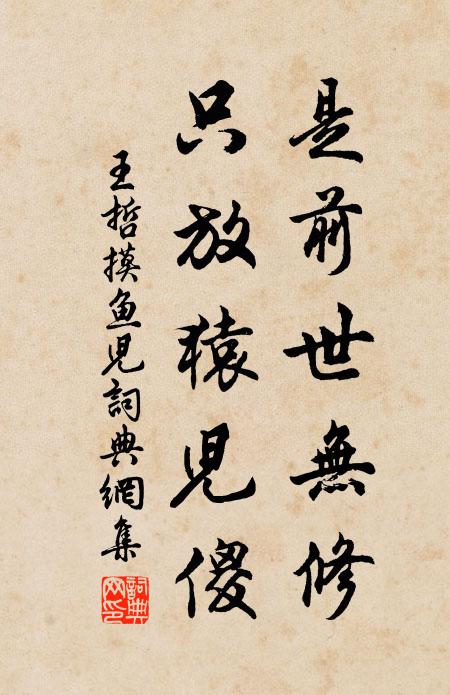 是前世無修
只放猿兒傻
王哲摸魚兒詞典網集
詞典网印